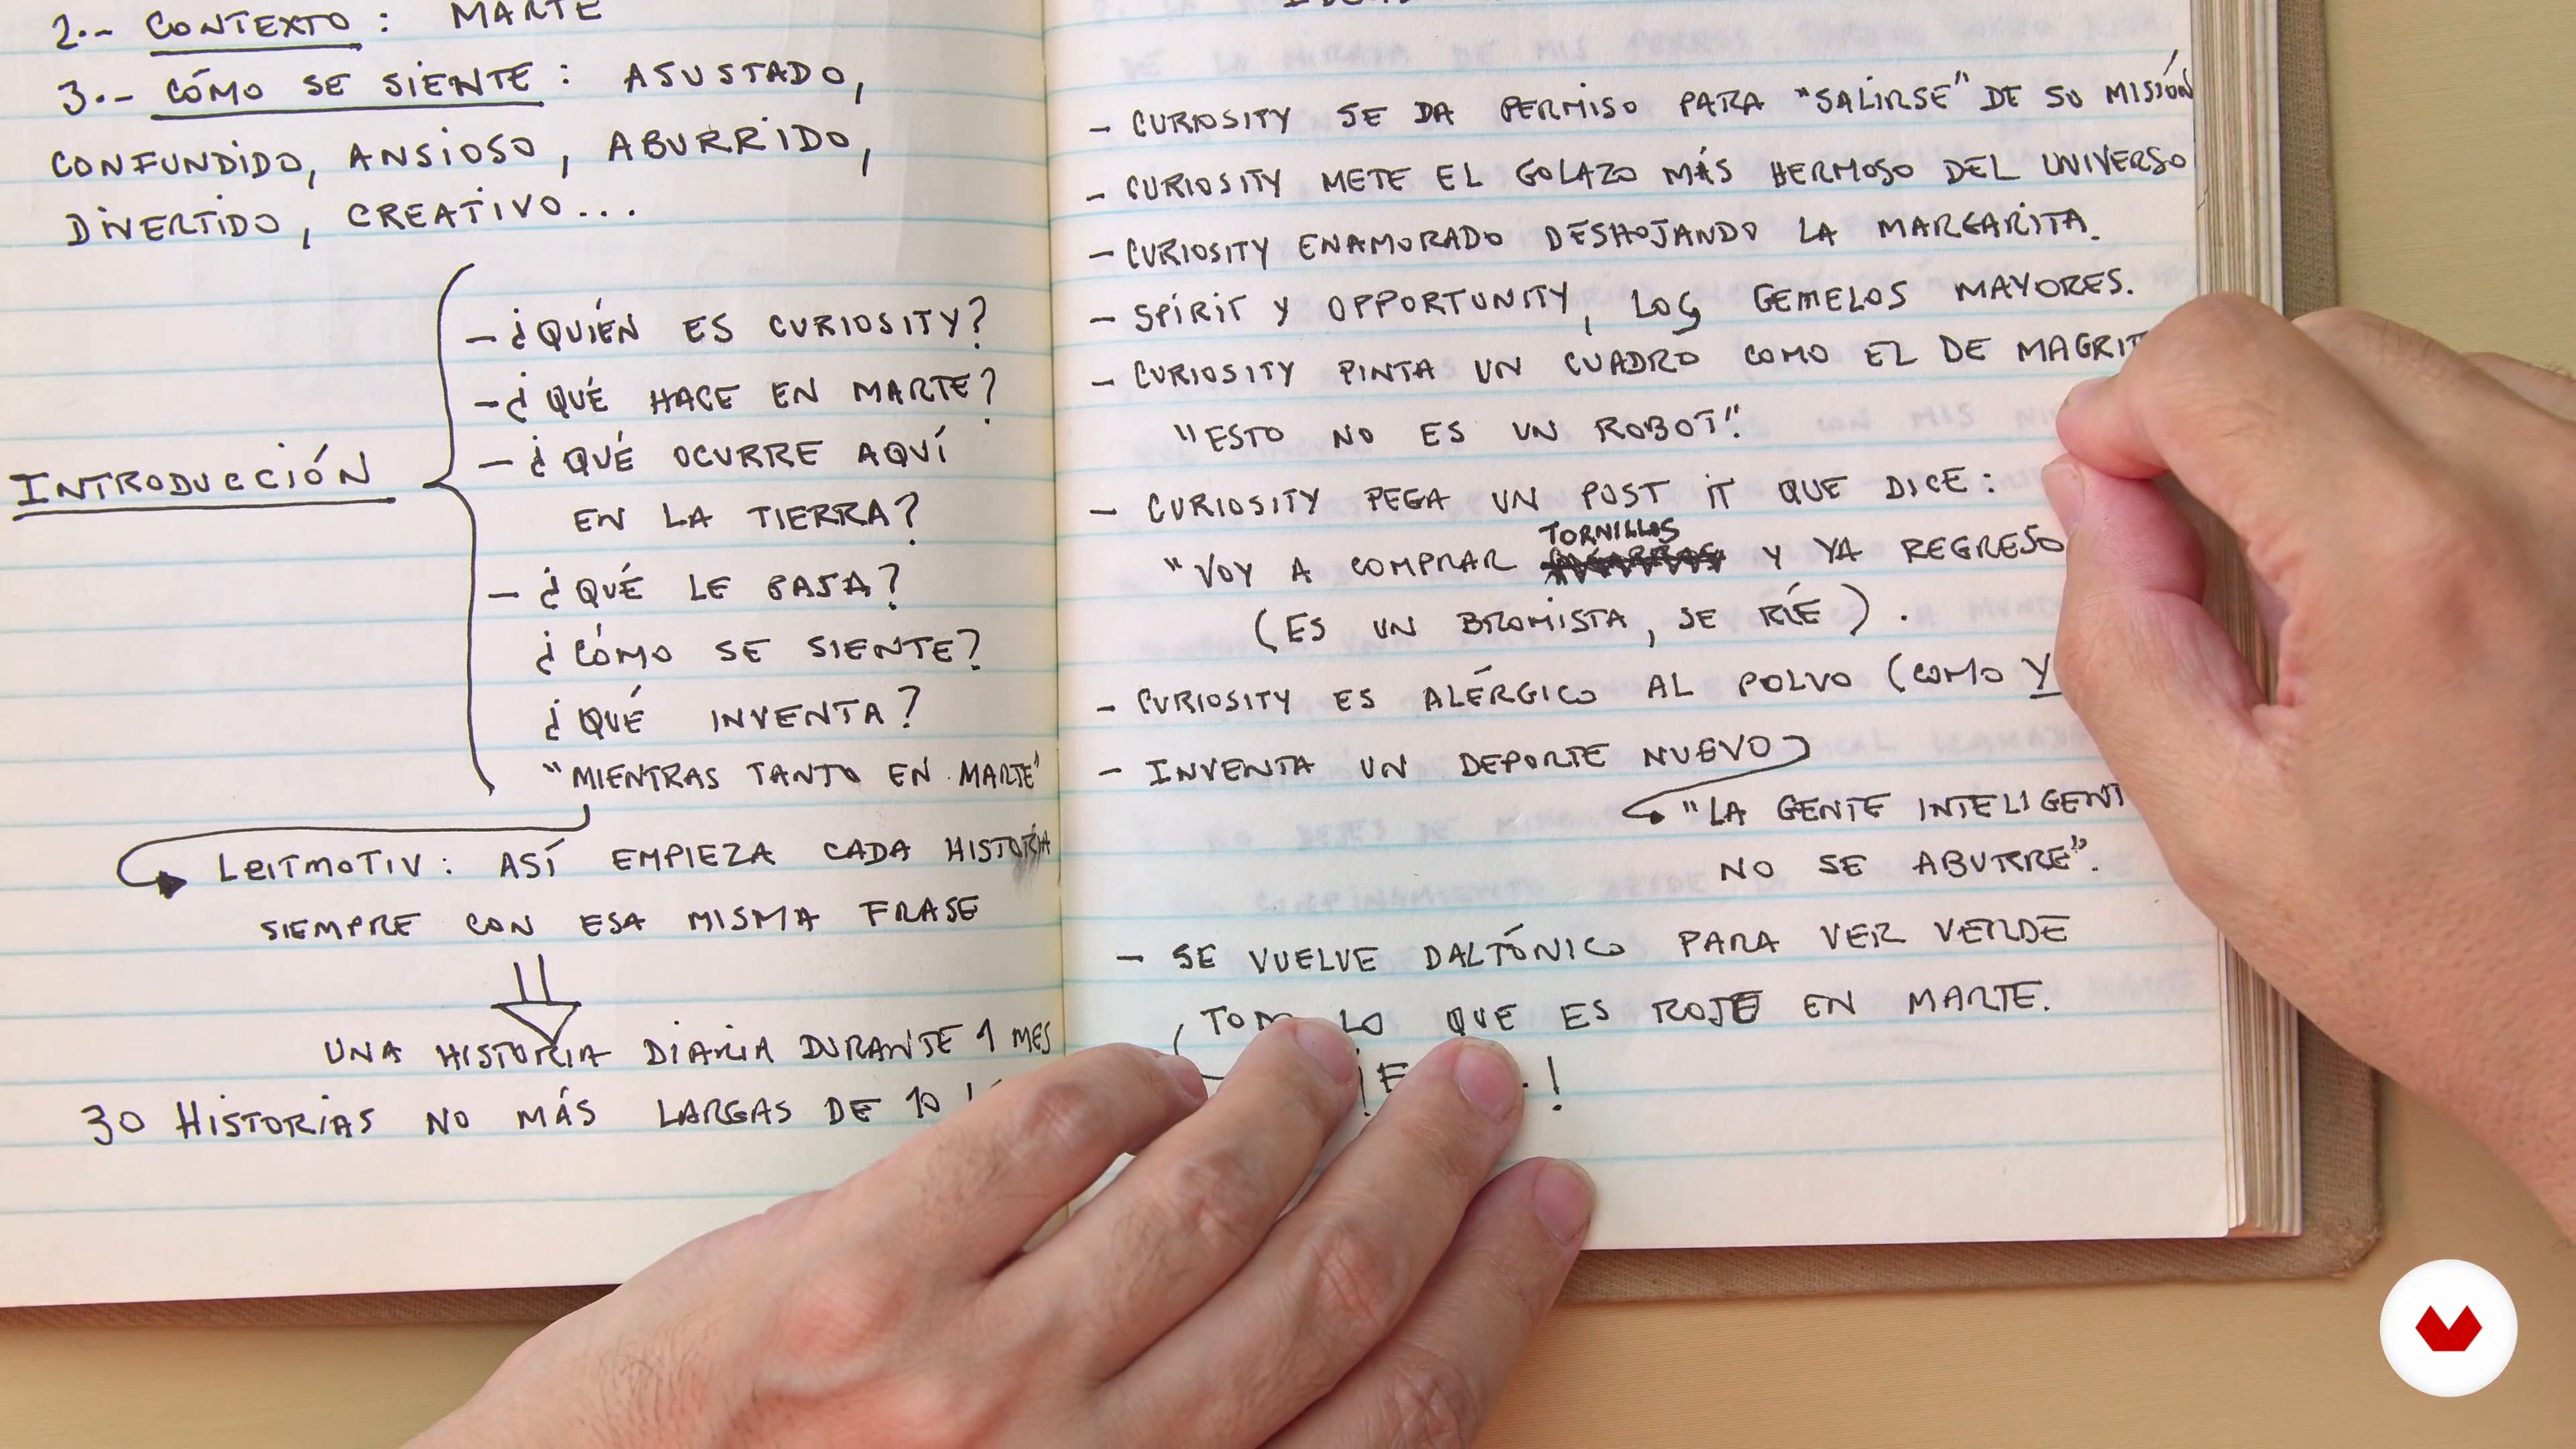 2.- CONTEXTO: MARTE
3.- CÓMO SE SIENTE: ASUSTADO,
CONFUNDIDO, ANSIOSO, ABURRIDO,
DIVERTIDO, CREATIVO...
INTRODUCCIÓN
- ¿QUIÉN ES CURIOSITY?
- ¿QUÉ HACE EN MARTE?
- ¿QUÉ OCURRE AQUÍ
EN LA TIERRA?
- ¿QUÉ LE PASA?
¿CÓMO SE SIENTE?
¿QUÉ INVENTA?
"MIENTRAS TANTO EN MARTE"
LEITMOTIV: ASÍ EMPIEZA CADA HISTORIA
SIEMPRE CON ESA MISMA FRASE
UNA HISTORIA DIARIA DURANTE 1 MES
30 HISTORIAS NO MÁS LARGAS DE 10
- CURIOSITY SE DA PERMISO PARA "SALIRSE" DE SU MISIÓN
- CURIOSITY METE EL GOLAZO MÁS HERMOSO DEL UNIVERSO
- CURIOSITY ENAMORADO DESHOJANDO LA MARGARITA.
- SPIRIT Y OPPORTUNITY, LOS GEMELOS MAYORES.
- CURIOSITY PINTA UN CUADRO COMO EL DE MAGRIT
"ESTO NO ES UN ROBOT".
- CURIOSITY PEGA UN POST IT QUE DICE:
TORNILLOS
"VOY A COMPRAR Y YA REGRESO
(ES UN BROMISTA, SE RÍE).
- CURIOSITY ES ALÉRGICO AL POLVO (COMO Y
- INVENTA UN DEPORTE NUEVO
"LA GENTE INTELIGENT
NO SE ABURRE".
- SE VUELVE DALTÓNICO PARA VER VERDE
LO QUE ES ROJO EN MARTE.